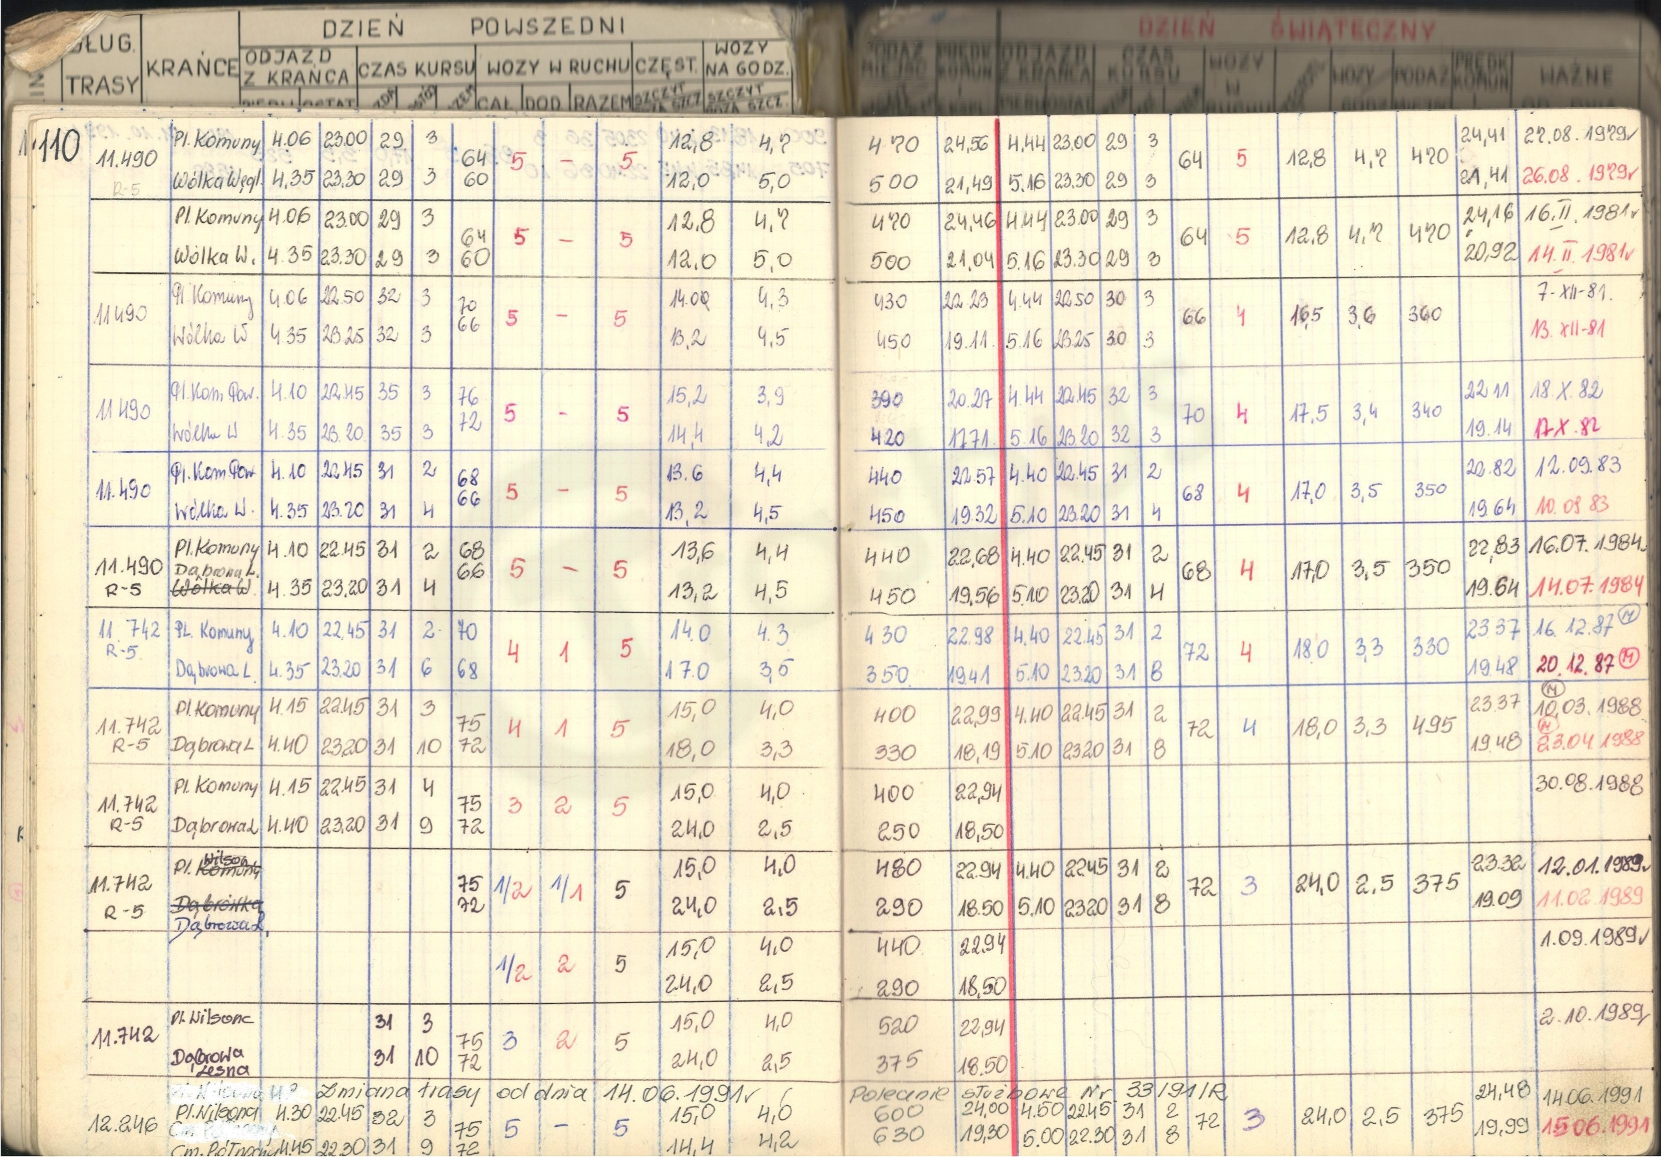 DZIEŃ POWSZEDNI DZIEŃ ŚWIĄTECZNY
DŁUG. TRASY KRAŃCE ODJAZD Z KRAŃCA CZAS KURSU WOZY W RUCHU CZĘST. WOZY NA GODZ. ODJAZD Z KRAŃCA CZAS KURSU WOZY W RUCHU WOZY PODAŻ PRĘDK KOMUN WAŻNE
CAŁ. DOD. RAZEM SZCZYT SZCZYT
110
11.490 Pl. Komuny 4.06 23.00 29 3 64 5 - 5 12,8 4,7 470 24,56 4.44 23.00 29 3 64 5 12,8 4,7 470 24,41 27.08.1979r
R-5 Wólka Węgl. 4.35 23.30 29 3 60 12,0 5,0 500 21,49 5.16 23.30 29 3 21,41 26.08.1979r
Pl. Komuny 4.06 23.00 29 3 64 5 - 5 12,8 4,7 470 24,46 4.44 23.00 29 3 64 5 12,8 4,7 470 24,16 16.II.1981r
Wólka W. 4.35 23.30 29 3 60 12,0 5,0 500 21,04 5.16 23.30 29 3 20,92 14.II.1981r
11490 Pl Komuny 4.06 22.50 32 3 70 5 - 5 14.00 4,3 430 22.23 4.44 22.50 30 3 66 4 16,5 3,6 360 7-XII-81.
Wólka W 4.35 23.25 32 3 66 13,2 4,5 450 19.11. 5.16 23.25 30 3 13.XII-81
11490 Pl. Kom. Par. 4.10 22.45 35 3 76 5 - 5 15,2 3,9 390 20.27 4.44 22.45 32 3 70 4 17,5 3,4 340 22 11 18.X.82
Wólka W 4.35 23.20 35 3 72 14,4 4,2 420 17.71. 5.16 23.20 32 3 19.14 17.X.82
11.490 Pl. Kom Par 4.10 22.45 31 2 68 5 - 5 13.6 4,4 440 22.57 4.40 22.45 31 2 68 4 17,0 3,5 350 20.82 12.09.83
Wólka W. 4.35 23.20 31 4 66 13,2 4,5 450 19 32 5.10 23.20 31 4 19.64 10.09 83
11.490 Pl. Komuny 4.10 22.45 31 2 68 5 - 5 13,6 4,4 440 22,68 4.40 22.45 31 2 68 4 17,0 3,5 350 22,83 16.07.1984
Dąbrowa L.
R-5 Wólka W. 4.35 23.20 31 4 66 13,2 4,5 450 19,56 5.10 23.20 31 4 19.64 14.07.1984
11.742 Pl. Komuny 4.10 22.45 31 2 70 4 1 5 14.0 4.3 430 22.98 4.40 22.45 31 2 72 4 18.0 3,3 330 23 37 16.12.87 M
R-5 Dąbrowa L. 4.35 23.20 31 6 68 17.0 3,5 350 19.41 5.10 23.20 31 8 19.48 20.12.87 M
11.742 Pl. Komuny 4.15 22.45 31 3 75 4 1 5 15,0 4,0 400 22,99 4.40 22.45 31 2 72 4 18,0 3,3 495 23.37 M 10.03.1988
R-5 Dąbrowa L 4.40 23.20 31 10 72 18,0 3,3 330 18,19 5.10 23.20 31 8 19.48 M 23.04 1988
11.742 Pl. Komuny 4.15 22.45 31 4 75 3 2 5 15,0 4,0 400 22,94 30.08.1988
R-5 Dąbrowa L 4.40 23.20 31 9 72 24,0 2,5 250 18,50
11.742 Pl. Komuny Wilson 75 1/2 1/1 5 15,0 4,0 480 22.94 4.40 22.45 31 2 72 3 24,0 2.5 375 23.32 12.01.1989r
R-5 Dąbrówka 72 24,0 2,5 290 18.50 5.10 23.20 31 8 19.09 11.02.1989
Dąbrowa L.
1/2 2 5 15,0 4,0 440 22,94 1.09.1989r
24,0 2,5 290 18,50
11.742 Pl. Wilsona 31 3 75 3 2 5 15,0 4,0 520 22,94 2.10.1989r
Dąbrowa Leśna 31 10 72 24,0 2,5 375 18.50
Zmiana trasy od dnia 14.06.1991r Polecenie służbowe Nr 33/91/R
12.246 Pl. Wilsona 4.30 22.45 32 3 75 5 - 5 15,0 4,0 600 24,00 4.50 22.45 31 2 72 3 24,0 2,5 375 24,48 14.06.1991
Cm. Północny 4.45 22.30 31 9 72 14,4 4,2 630 19,30 5.00 22.30 31 8 19,99 15.06.1991